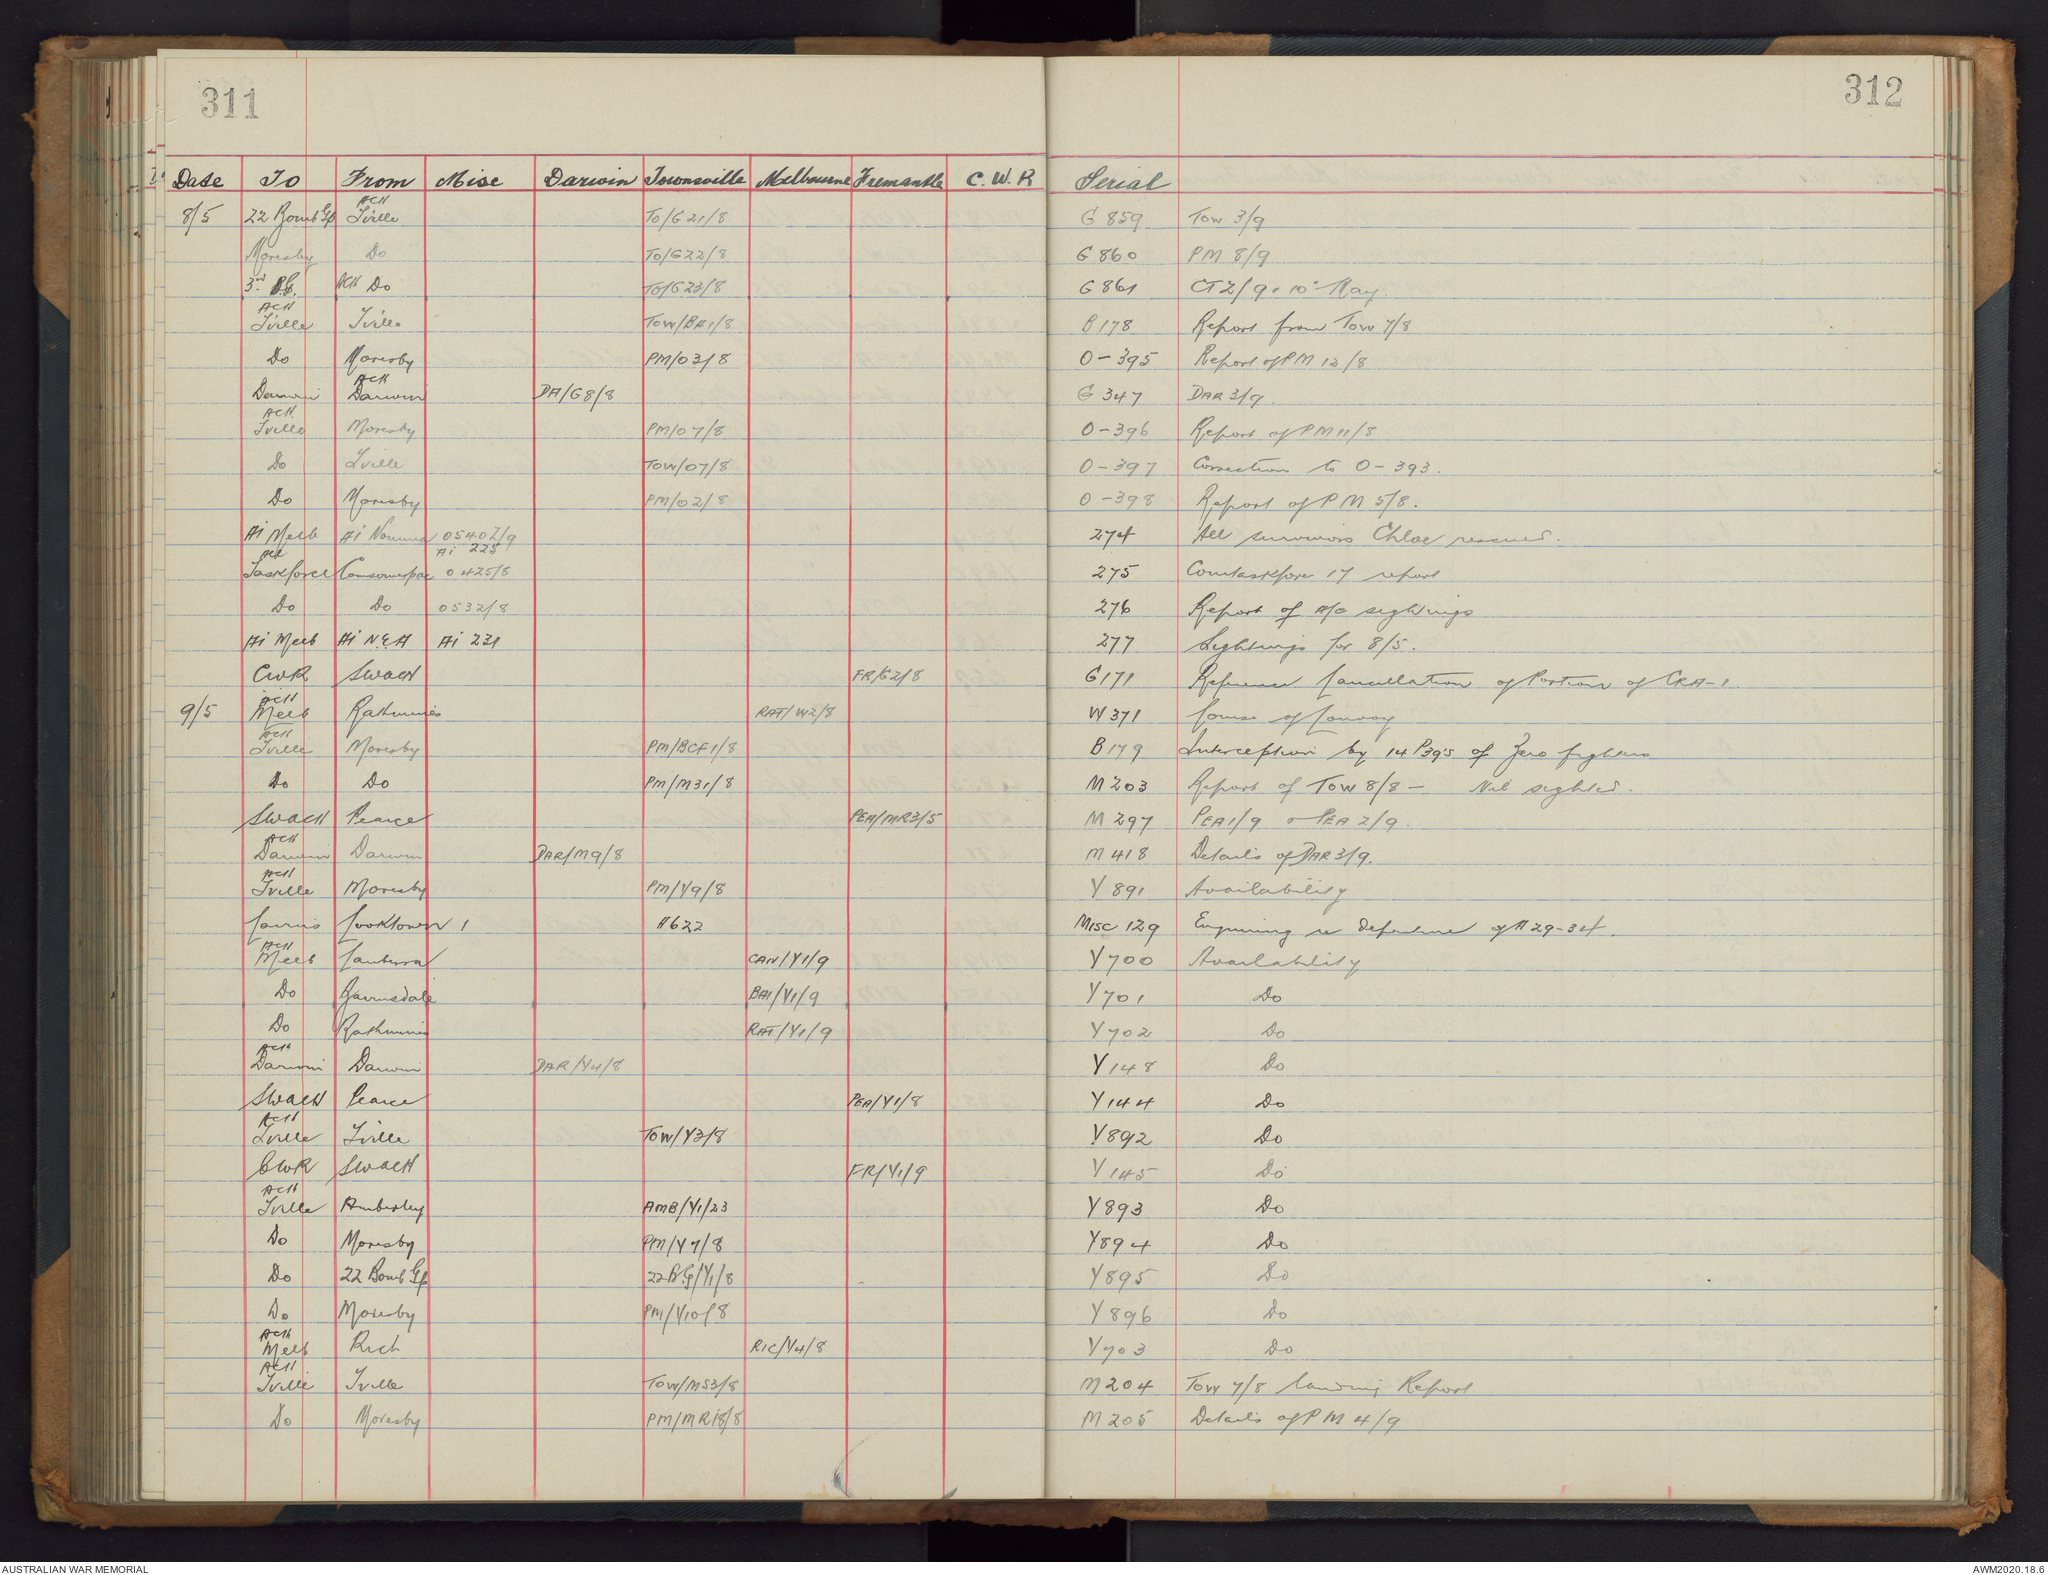 311
312
Date To From Misc Darwin Townsville Melbourne Fremantle C.W.R Serial
8/5 22 Bomb Gp ACH T'ville TO/G21/8 G 859 Tow 3/9
Moresby Do TO/G22/8 G 860 PM 8/9
3rd B.G. ACH Do TO/G23/8 G 861 CT 2/9 - 10 May.
ACH T'ville T'ville TOW/BF1/8 B 178 Report from Tow 7/8
Do Moresby PM/03/8 O-395 Report of PM 12/8
Darwin ACH Darwin DA/G8/8 G 347 DAR 3/9.
ACH T'ville Moresby PM/07/8 O-396 Report of PM 11/8
Do T'ville TOW/07/8 O-397 Correction to O-393.
Do Moresby PM/02/8 O-398 Report of PM 5/8.
Ai Melb Ai Noumea 0540Z/9 Ai 225 274 All survivors Chloe rescued.
ACH Taskforce Comsowespac 0425/8 275 Comtaskforce 17 report
Do Do 0532/8 276 Report of A/C sightings
Ai Melb Ai NEA Ai 231 277 Sightings for 8/5.
CWR SWACH FR/G2/8 G171 Reference Cancellation of Portion of CRA-1
9/5 ACH Melb Rathmines RAT/W2/8 W 371 Course of Convoy
ACH T'ville Moresby PM/BCF1/8 B 179 Interception by 14 P39's of Zero fighters
Do Do PM/M31/8 M 203 Report of Tow 8/8 - Nil sighted.
SWACH Pearce PEA/MR3/5 M 297 PEA 1/9 & PEA 2/9.
ACH Darwin Darwin DAR/M9/8 M 418 Details of DAR 3/9.
ACH T'ville Moresby PM/Y9/8 Y 891 Availability
Cairns Cooktown 1 A622 Misc 129 Enquiring re departure of A 29-34.
ACH Melb Canberra CAN/Y1/9 Y 700 Availability
Do Bairnsdale BAI/Y1/9 Y 701 Do
Do Rathmines RAT/Y1/9 Y 702 Do
ACH Darwin Darwin DAR/Y4/8 Y 148 Do
SWACH Pearce PEA/Y1/8 Y 144 Do
ACH T'ville T'ville TOW/Y3/8 Y 892 Do
CWR SWACH FR/Y1/9 Y 145 Do
ACH T'ville Amberley AMB/Y1/23 Y 893 Do
Do Moresby PM/Y7/8 Y 894 Do
Do 22 Bomb Gp 22 B.G/Y1/8 Y 895 Do
Do Moresby PM/Y10/8 Y 896 Do
ACH Melb Rich RIC/Y4/8 Y 703 Do
ACH T'ville T'ville TOW/MS3/8 M 204 Tow 7/8 landing Report
Do Moresby PM/MR18/8 M 205 Details of PM 4/9
AUSTRALIAN WAR MEMORIAL
AWM2020.18.6